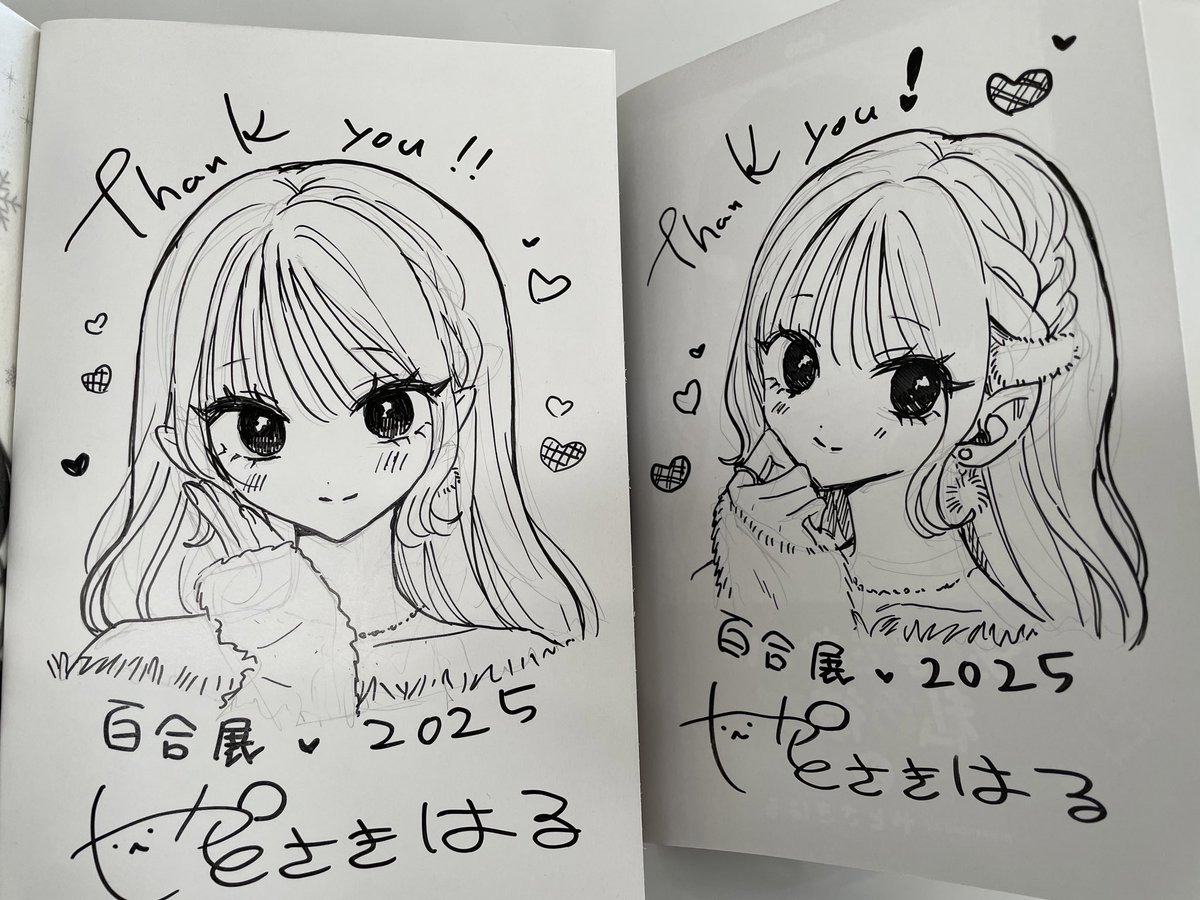 Thank you!!
百合展 ♥ 2025
やとさきはる
Thank you!
百合展 ♥ 2025
やとさきはる